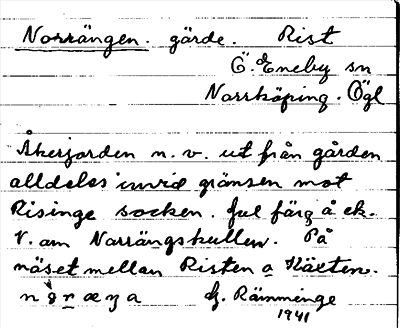 Norrängen. gärde. Rist
Ö. Eneby sn
Norrköping. Ögl
Åkerjorden n. v. ut från gården
alldeles invid gränsen mot
Risinge socken. ful färg å ek.
V. om Norrängskullen. På
näset mellan Risten o Käxten.
H. Rämminge
1941